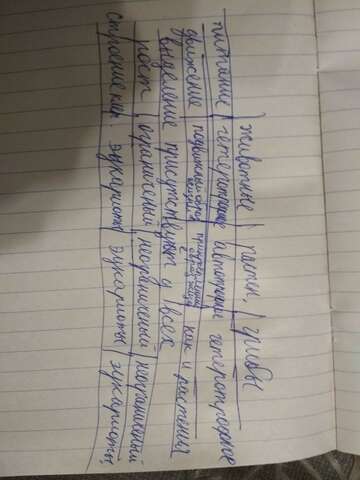 животные растен. грибы
питание гетеротрофное автотрофное гетеротрофное
движение подвижный образ жизни прикрепленный образ жизни как и растения
выделение присутствуют у всех
рост ограниченый неограниченый неограниченый
строение кл. эукариоты эукариоты эукариоты